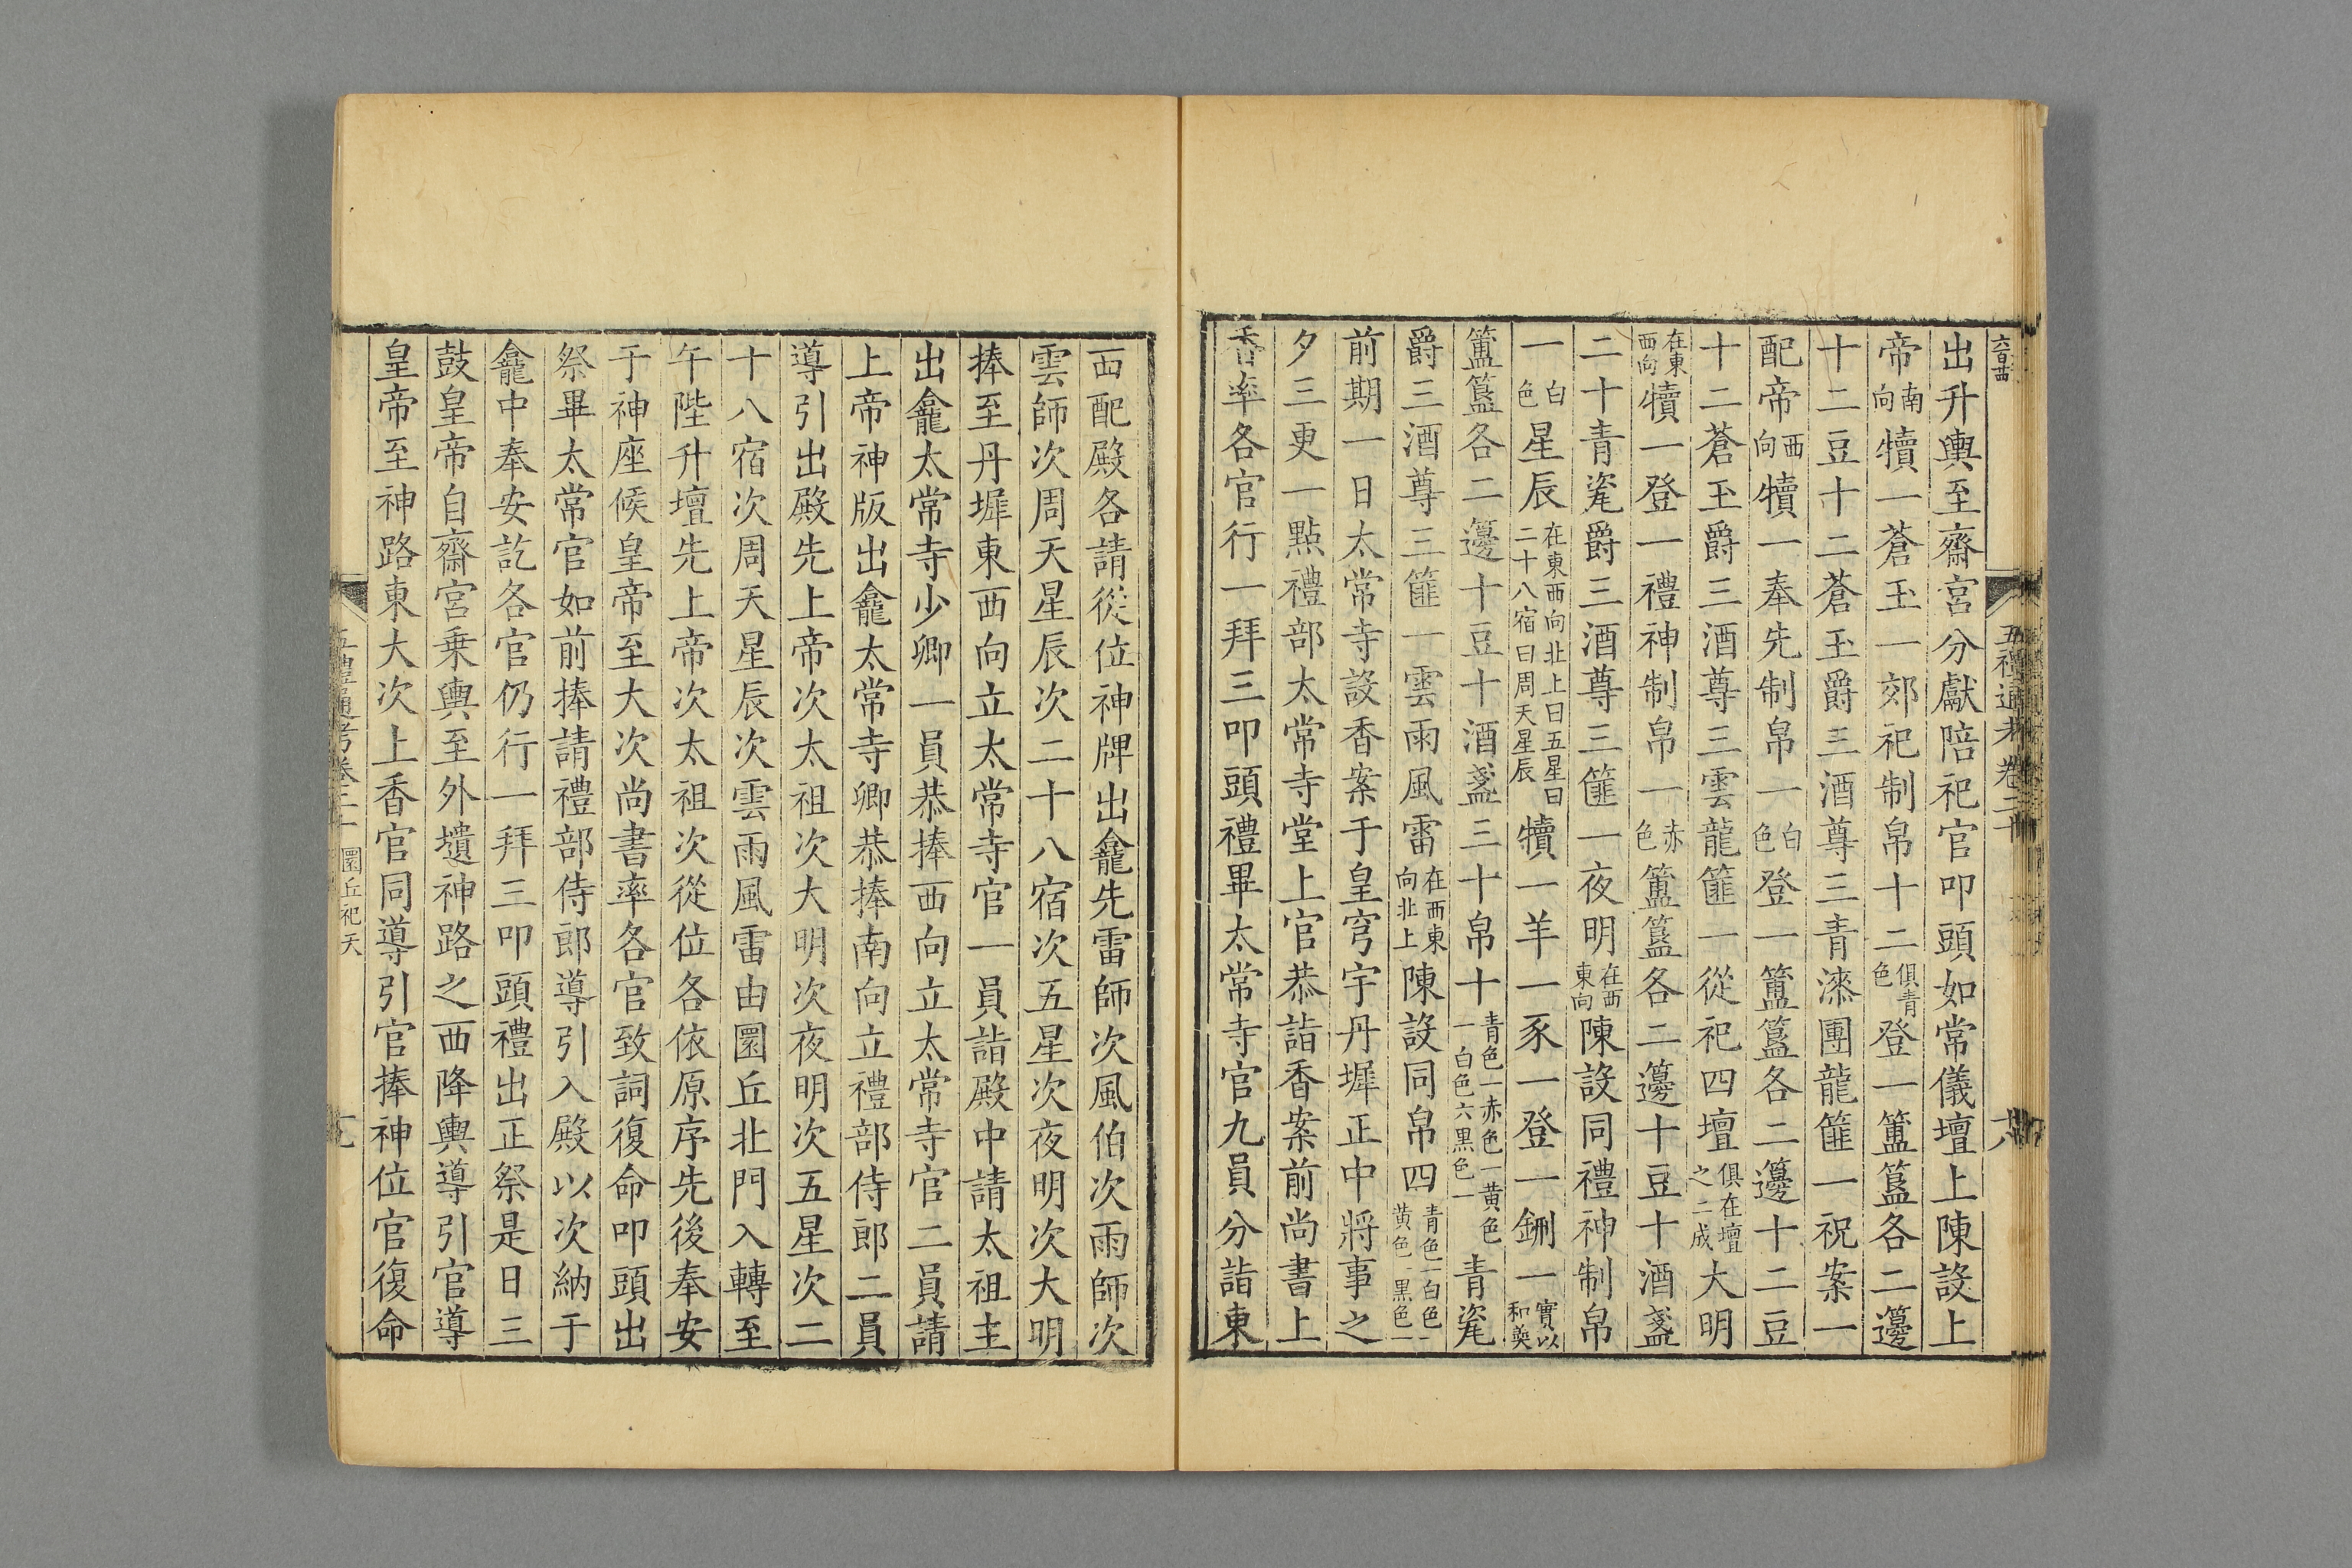 六百廿
五禮通考卷二十
六
出升輿至齋宮分獻陪祀官叩頭如常儀壇上陳設上
帝南向犢一蒼玉一郊祀制帛十二俱青色登一簠簋各二籩
十二豆十二蒼玉爵三酒尊三青漆團龍篚一祝案一
配帝西向犢一奉先制帛一白色登一簠簋各二籩十二豆
十二蒼玉爵三酒尊三雲龍篚一從祀四壇俱在壇之二成大明
在東西向犢一登一禮神制帛一赤色簠簋各二籩十豆十酒盞
二十青瓷爵三酒尊三篚一夜明在西東向陳設同禮神制帛
一白色星辰在東西向北上曰五星曰二十八宿曰周天星辰犢一羊一豕一登一鉶一實以和羹
簠簋各二籩十豆十酒盞三十帛十青色一赤色一黃色一白色六黑色一青瓷
爵三酒尊三篚一雲雨風雷在西東向北上陳設同帛四青色一白色一黃色一黑色一
前期一日太常寺設香案于皇穹宇丹墀正中將事之
夕三更一點禮部太常寺堂上官恭詣香案前尚書上
香率各官行一拜三叩頭禮畢太常寺官九員分詣東
西配殿各請從位神牌出龕先雷師次風伯次雨師次
雲師次周天星辰次二十八宿次五星次夜明次大明
捧至丹墀東西向立太常寺官一員詣殿中請太祖主
出龕太常寺少卿一員恭捧西向立太常寺官二員請
上帝神版出龕太常寺卿恭捧南向立禮部侍郎二員
導引出殿先上帝次太祖次大明次夜明次五星次二
十八宿次周天星辰次雲雨風雷由圜丘北門入轉至
午陛升壇先上帝次太祖次從位各依原序先後奉安
于神座候皇帝至大次尚書率各官致詞復命叩頭出
祭畢太常官如前捧請禮部侍郎導引入殿以次納于
龕中奉安訖各官仍行一拜三叩頭禮出正祭是日三
鼓皇帝自齋宮乗輿至外壝神路之西降輿導引官導
皇帝至神路東大次上香官同導引官捧神位官復命
五禮通考卷二十 圜丘祀天